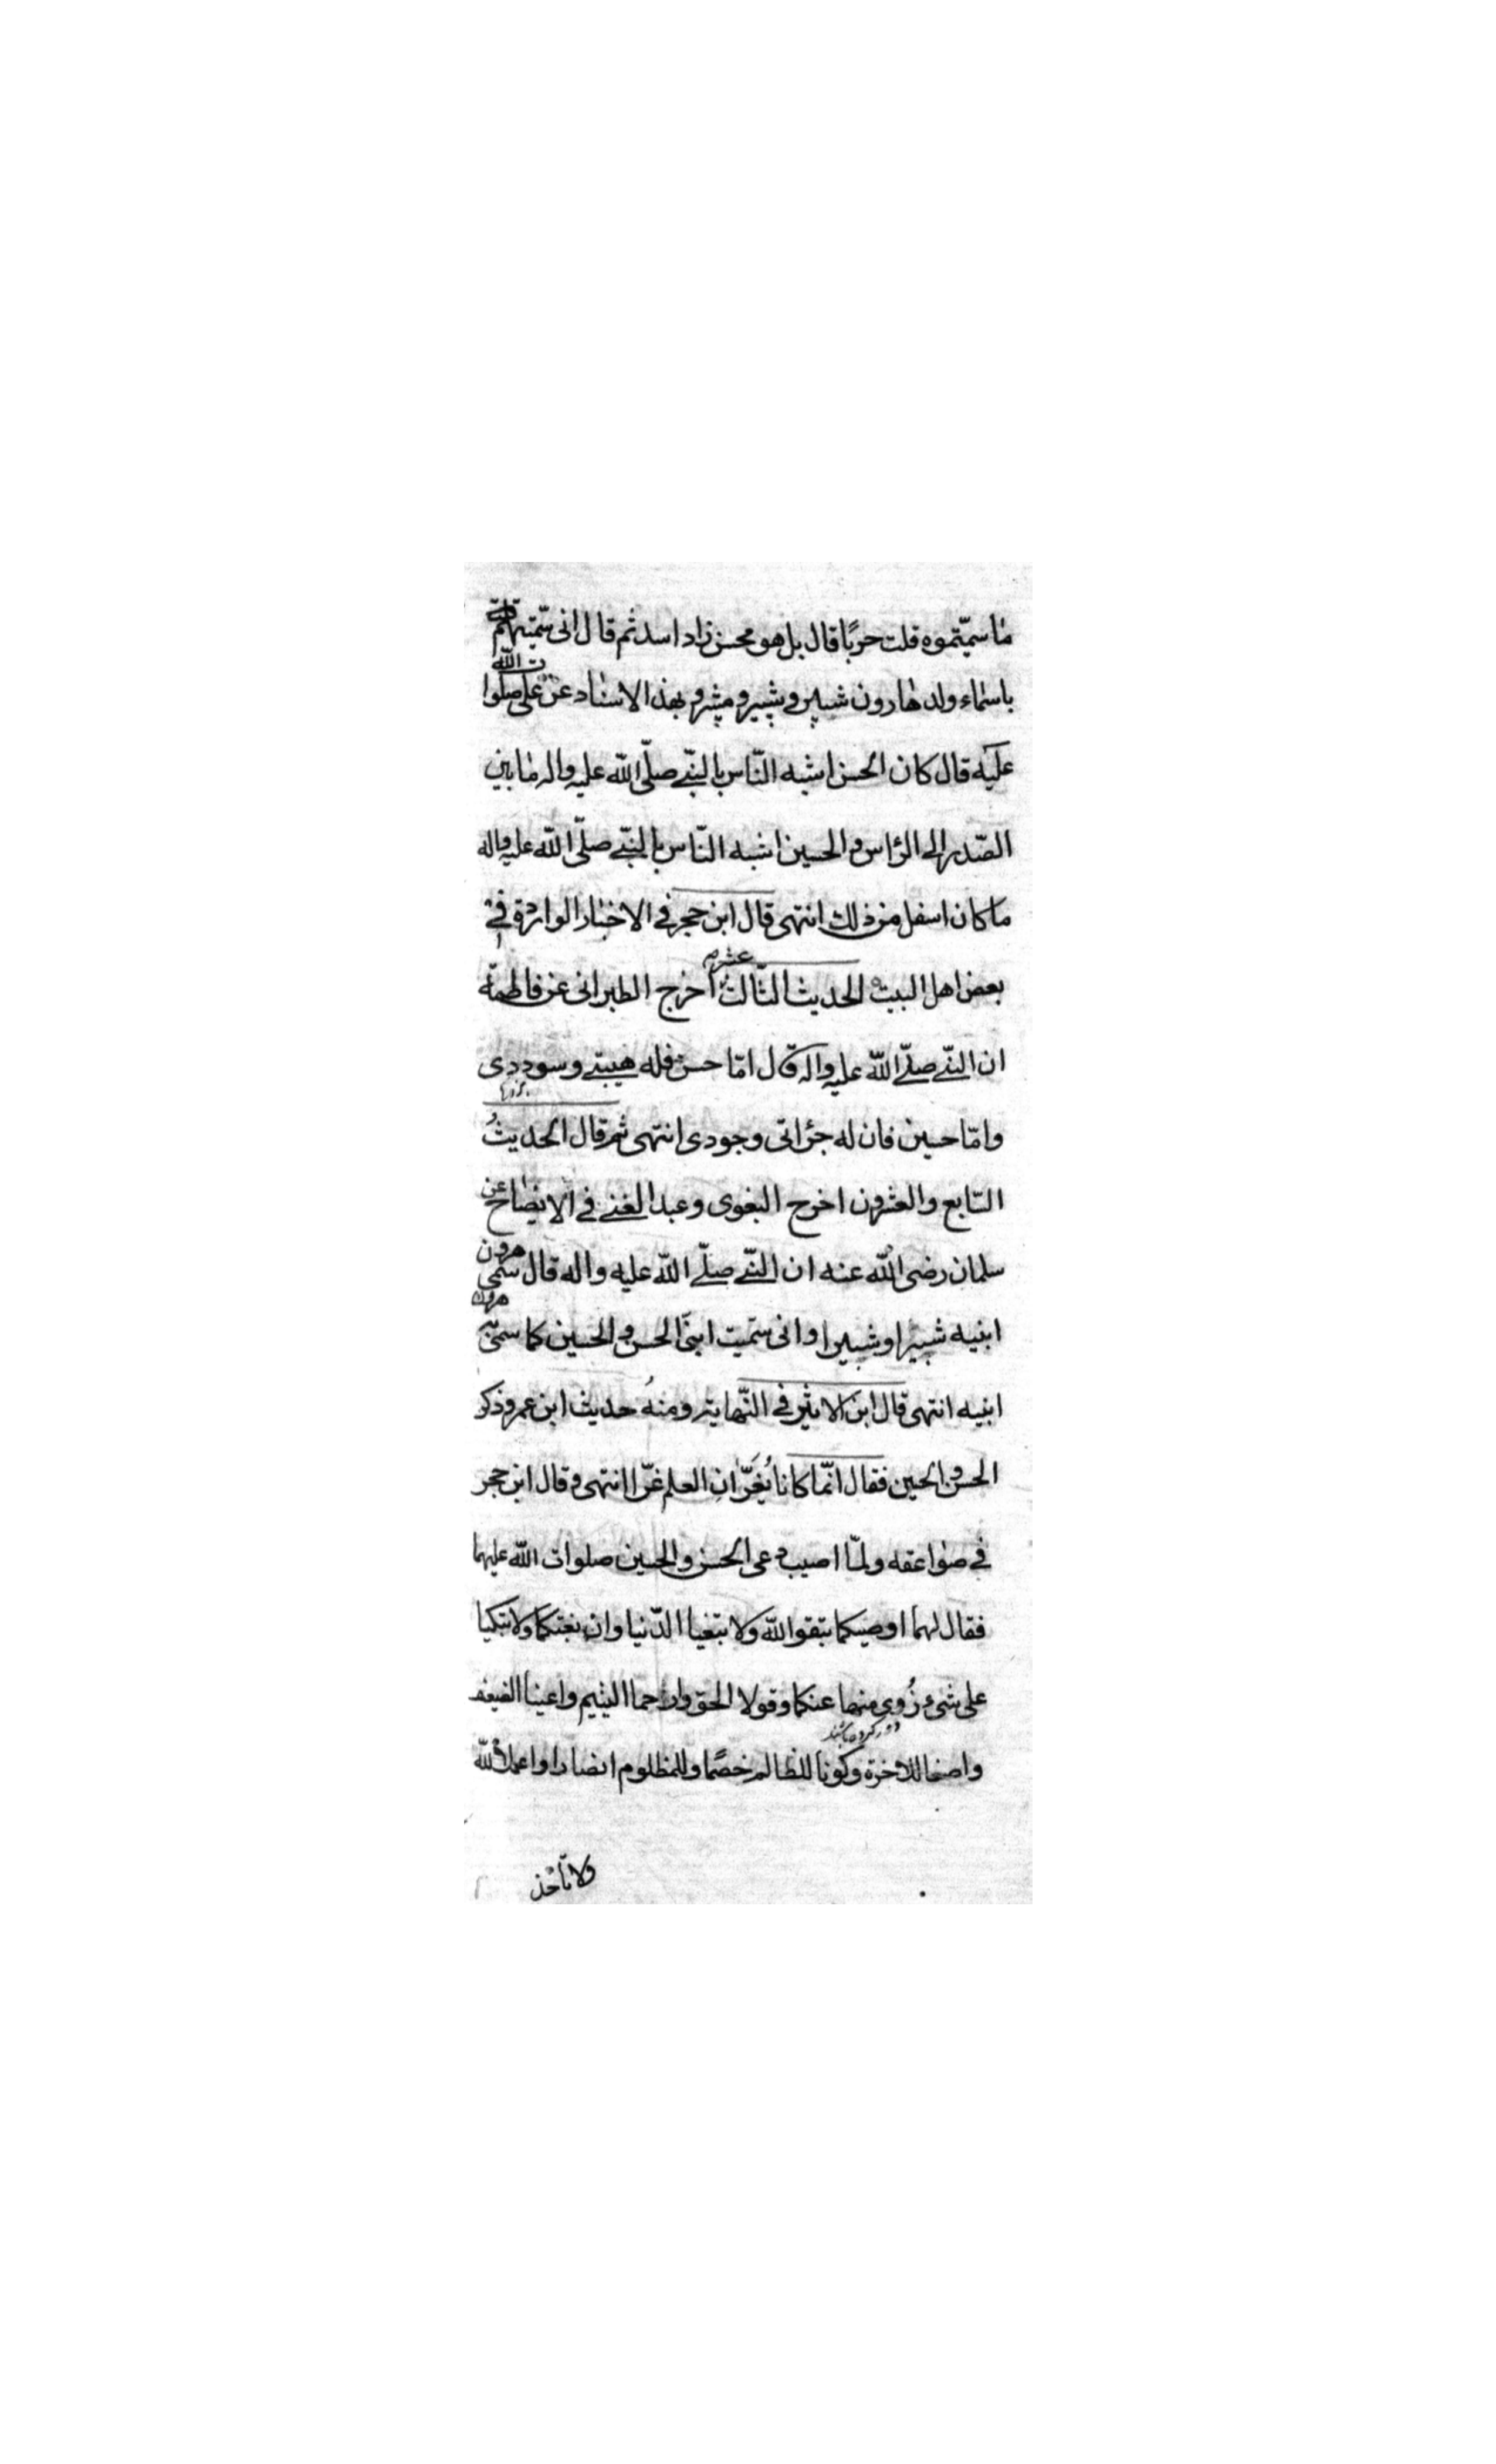 ماسمیّتموه قلت حربًا قال بل هو محسن زاد اسد ثم قال انی سمّیتهم
باسماء ولد هارون شبیر و شبیر و مشبر و بهذا الاسناد عن علی صلوات الله
علیه قال کان الحسن اشبه النّاس بالنبّے صلّی الله علیه واله مابین
الصّدر الی الرّاس و الحسین اشبه النّاس بالنبّے صلّی الله علیه واله
ماکان اسفل من ذلك انتهی قال ابن حجر فی الاخبار الواردة فی
بعض اهل البیت الحدیث الثّالث عشر اخرج الطبرانی عن فاطمة
ان النبّے صلّے الله علیه واله قال امّا حسن فله هیبتے وسوددی
وامّا حسین فان له جرٔاتی وجودی انتهی ثم قال الحدیثُ
السّابع والعشرون اخرج البغوی وعبد الغنے فی الایضاح عن
سلمان رضی الله عنه ان النبّے صلّے الله علیه واله قال سمّی هرون
ابنیه شبیرا وشبیرا وانی سمّیت ابنیّ الحسن و الحسین کما سمّی به هرون
ابنیه انتهی قال ابن الاثیر فی النّهایة ومنهُ حدیث ابن عمر وذکر
الحسن والحسین فقال انّما کانا یُغَرّانِ العلم غرّا انتهی و قال ابن حجر
فی صواعقه ولمّا اصیب دعی الحسن والحسین صلوات الله علیهما
فقال لهما اوصیکما بتقوالله ولا تبغیا الدّنیا وان بغتکما ولا تبکیا
علی شیء زُوی منها عنکما وقولا الحق وارحما الیتیم واعینا الضعیف
دور کرده باشند
واصنعا للاخرة وکونا للظالم خصمًا وللمظلوم انصارا واعملا لله
ولا تأخذ